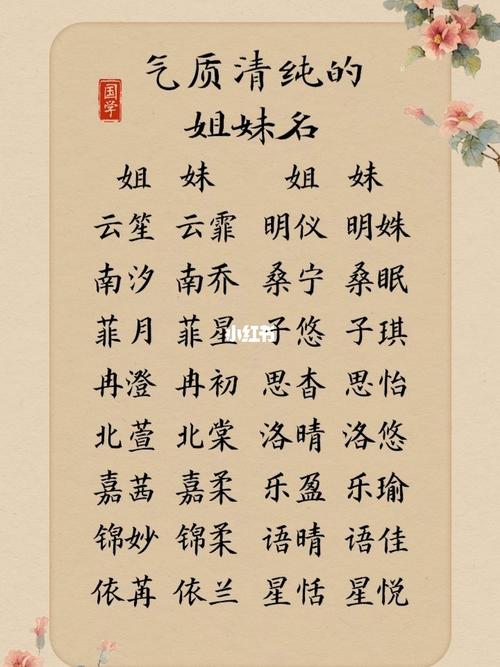 国学
气质清纯的
姐妹名
姐 妹 姐 妹
云笙 云霏 明仪 明姝
南汐 南乔 桑宁 桑眠
菲月 菲星 子悠 子琪
冉澄 冉初 思杳 思怡
北萱 北棠 洛晴 洛悠
嘉茜 嘉柔 乐盈 乐瑜
锦妙 锦柔 语晴 语佳
依苒 依兰 星恬 星悦
小红书